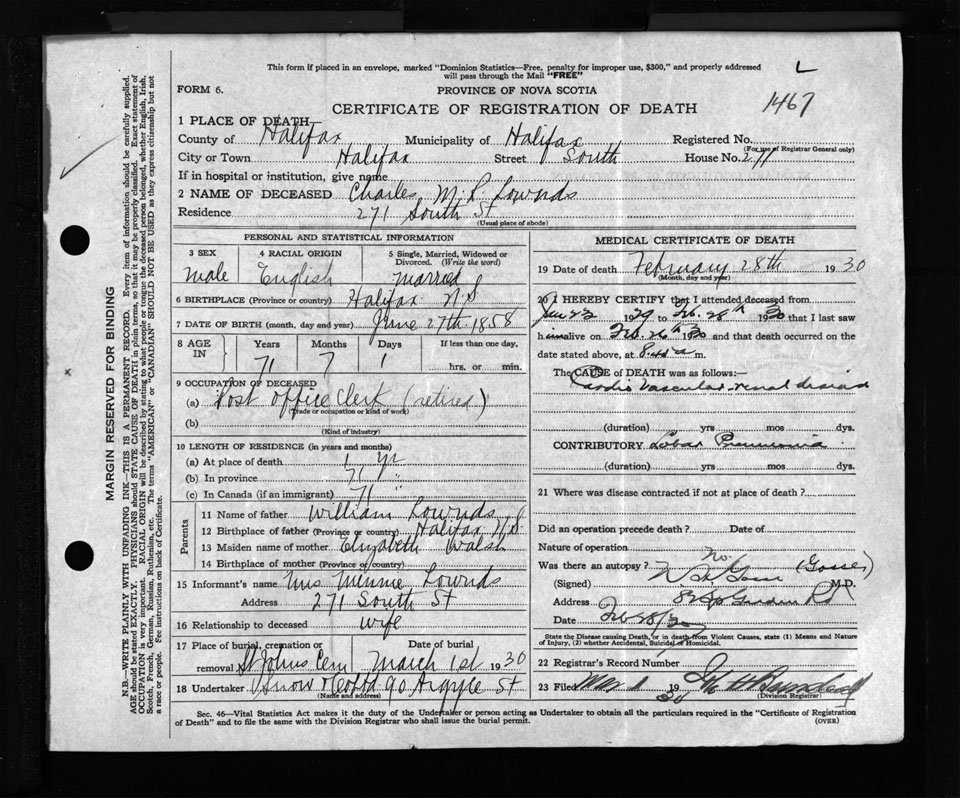 This form if placed in an envelope, marked "Dominion Statistics—Free, penalty for improper use, $300," and properly addressed
will pass through the Mail "FREE"
L
FORM 6.
PROVINCE OF NOVA SCOTIA
CERTIFICATE OF REGISTRATION OF DEATH
1467
1 PLACE OF DEATH
County of Halifax Municipality of Halifax Registered No.
(For use of Registrar General only)
City or Town Halifax Street South House No. 271
If in hospital or institution, give name
2 NAME OF DECEASED Charles M. Lownds
Residence 271 South St
(Usual place of abode)
PERSONAL AND STATISTICAL INFORMATION
3 SEX 4 RACIAL ORIGIN 5 Single, Married, Widowed or
Divorced. (Write the word)
Male English Married
6 BIRTHPLACE (Province or country) Halifax N.S
7 DATE OF BIRTH (month, day and year) June 27th 1858
8 AGE IN Years Months Days If less than one day,
71 7 1 hrs. or min.
9 OCCUPATION OF DECEASED
(a) Post office Clerk (retired)
(Trade or occupation or kind of work)
(b)
(Kind of industry)
10 LENGTH OF RESIDENCE (in years and months)
(a) At place of death yr
(b) In province 71 "
(c) In Canada (if an immigrant) 71
Parents
11 Name of father William Lownds
12 Birthplace of father (Province or country) Halifax N.S.
13 Maiden name of mother Elizabeth Walsh
14 Birthplace of mother (Province or country)
15 Informant's name Mrs Minnie Lownds
Address 271 South St
16 Relationship to deceased wife
17 Place of burial, cremation or Date of burial
removal St Johns Cem March 1st 1930
18 Undertaker Snow & Co Ltd 90 Argyle St
(Name and address)
MEDICAL CERTIFICATE OF DEATH
19 Date of death February 28th 1930
(Month, day and year)
20 I HEREBY CERTIFY that I attended deceased from
1929 to Feb. 28th 1930 that I last saw
him alive on Feb. 26th 1930 and that death occurred on the
date stated above, at m.
The CAUSE of DEATH was as follows:—
Cardio Vascular-renal disease
(duration) yrs mos dys.
CONTRIBUTORY Lobar Pneumonia
(duration) yrs mos dys.
21 Where was disease contracted if not at place of death?
Did an operation precede death? Date of
Nature of operation
Was there an autopsy? No. (Gosse)
(Signed) Gosse M.D.
Address Rd
Date Feb 28/30
State the Disease causing Death, or in death from Violent Causes, state (1) Means and Nature
of Injury, (2) whether Accidental, Suicidal or Homicidal.
22 Registrar's Record Number
23 Filed Mar 1 1930
(Division Registrar)
Sec. 46—Vital Statistics Act makes it the duty of the Undertaker or person acting as Undertaker to obtain all the particulars required in the "Certificate of Registration
of Death" and to file the same with the Division Registrar who shall issue the burial permit.
(OVER)
MARGIN RESERVED FOR BINDING
N.B.—WRITE PLAINLY WITH UNFADING INK—THIS IS A PERMANENT RECORD. Every item of information should be carefully supplied.
AGE should be stated EXACTLY. PHYSICIANS should STATE CAUSE OF DEATH in plain terms, so that it may be properly classified. Exact statement of
OCCUPATION is very important. RACIAL ORIGIN will be described by stating to what people or tongue the deceased person belonged, whether English, Irish,
Scotch, French, German, Russian, Ruthenian, etc. The terms "AMERICAN" or "CANADIAN" SHOULD NOT BE USED as they express citizenship but not
a race or people. See instructions on back of Certificate.